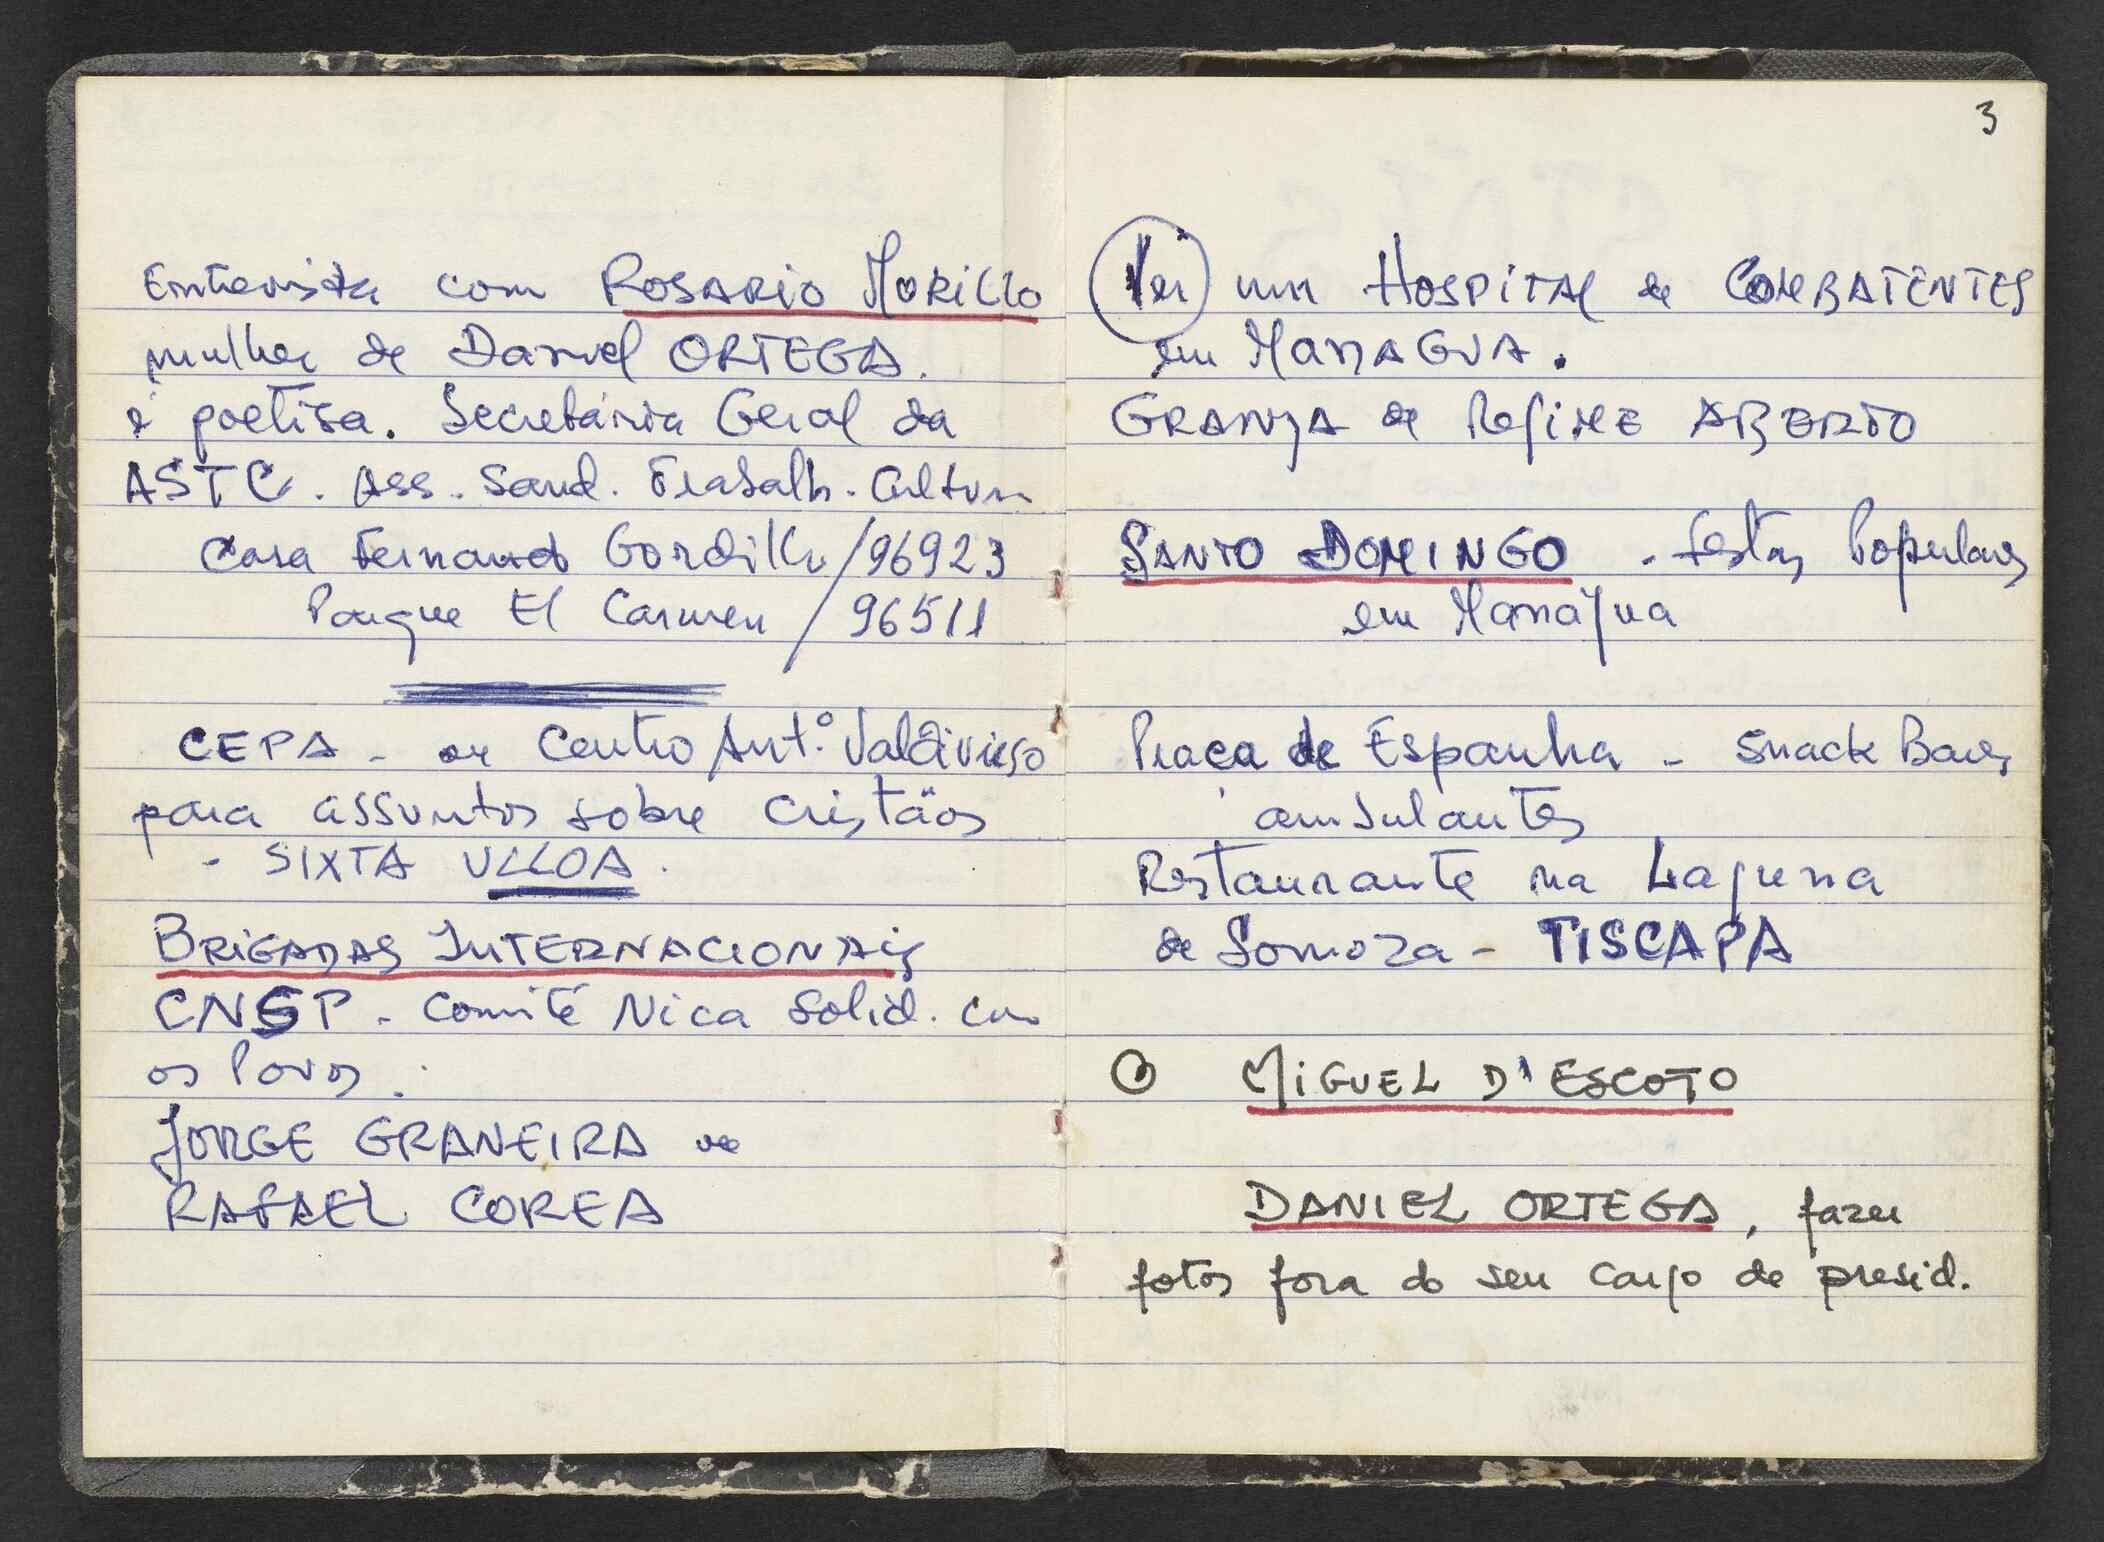 Entrevista com ROSARIO MORILLO
mulher de Daniel ORTEGA.
é poetisa. Secretária Geral da
ASTC. Ass. Sand. Trabalh. Cultura
Casa Fernando Gordillo / 96923
Parque El Carmen / 96511
CEPA - ou Centro Ant.º Valdivieso
para assuntos sobre cristãos
- SIXTA ULLOA.
BRIGADAS INTERNACIONAIS
CNSP - Comité Nica Solid. com
os Povos.
JORGE GRANEIRA ou
RAFAEL COREA
3
Ver um HOSPITAL de COMBATENTES
em MANAGUA.
GRANJA de RegiME ABERTO
SANTO DOMINGO - festas Populares
em Manágua
Praça de Espanha - Snack Bares
ambulantes
Restaurante na Laguna
de Somoza - TISCAPA
O MIGUEL D'ESCOTO
DANIEL ORTEGA, fazer
fotos fora do seu cargo de presid.